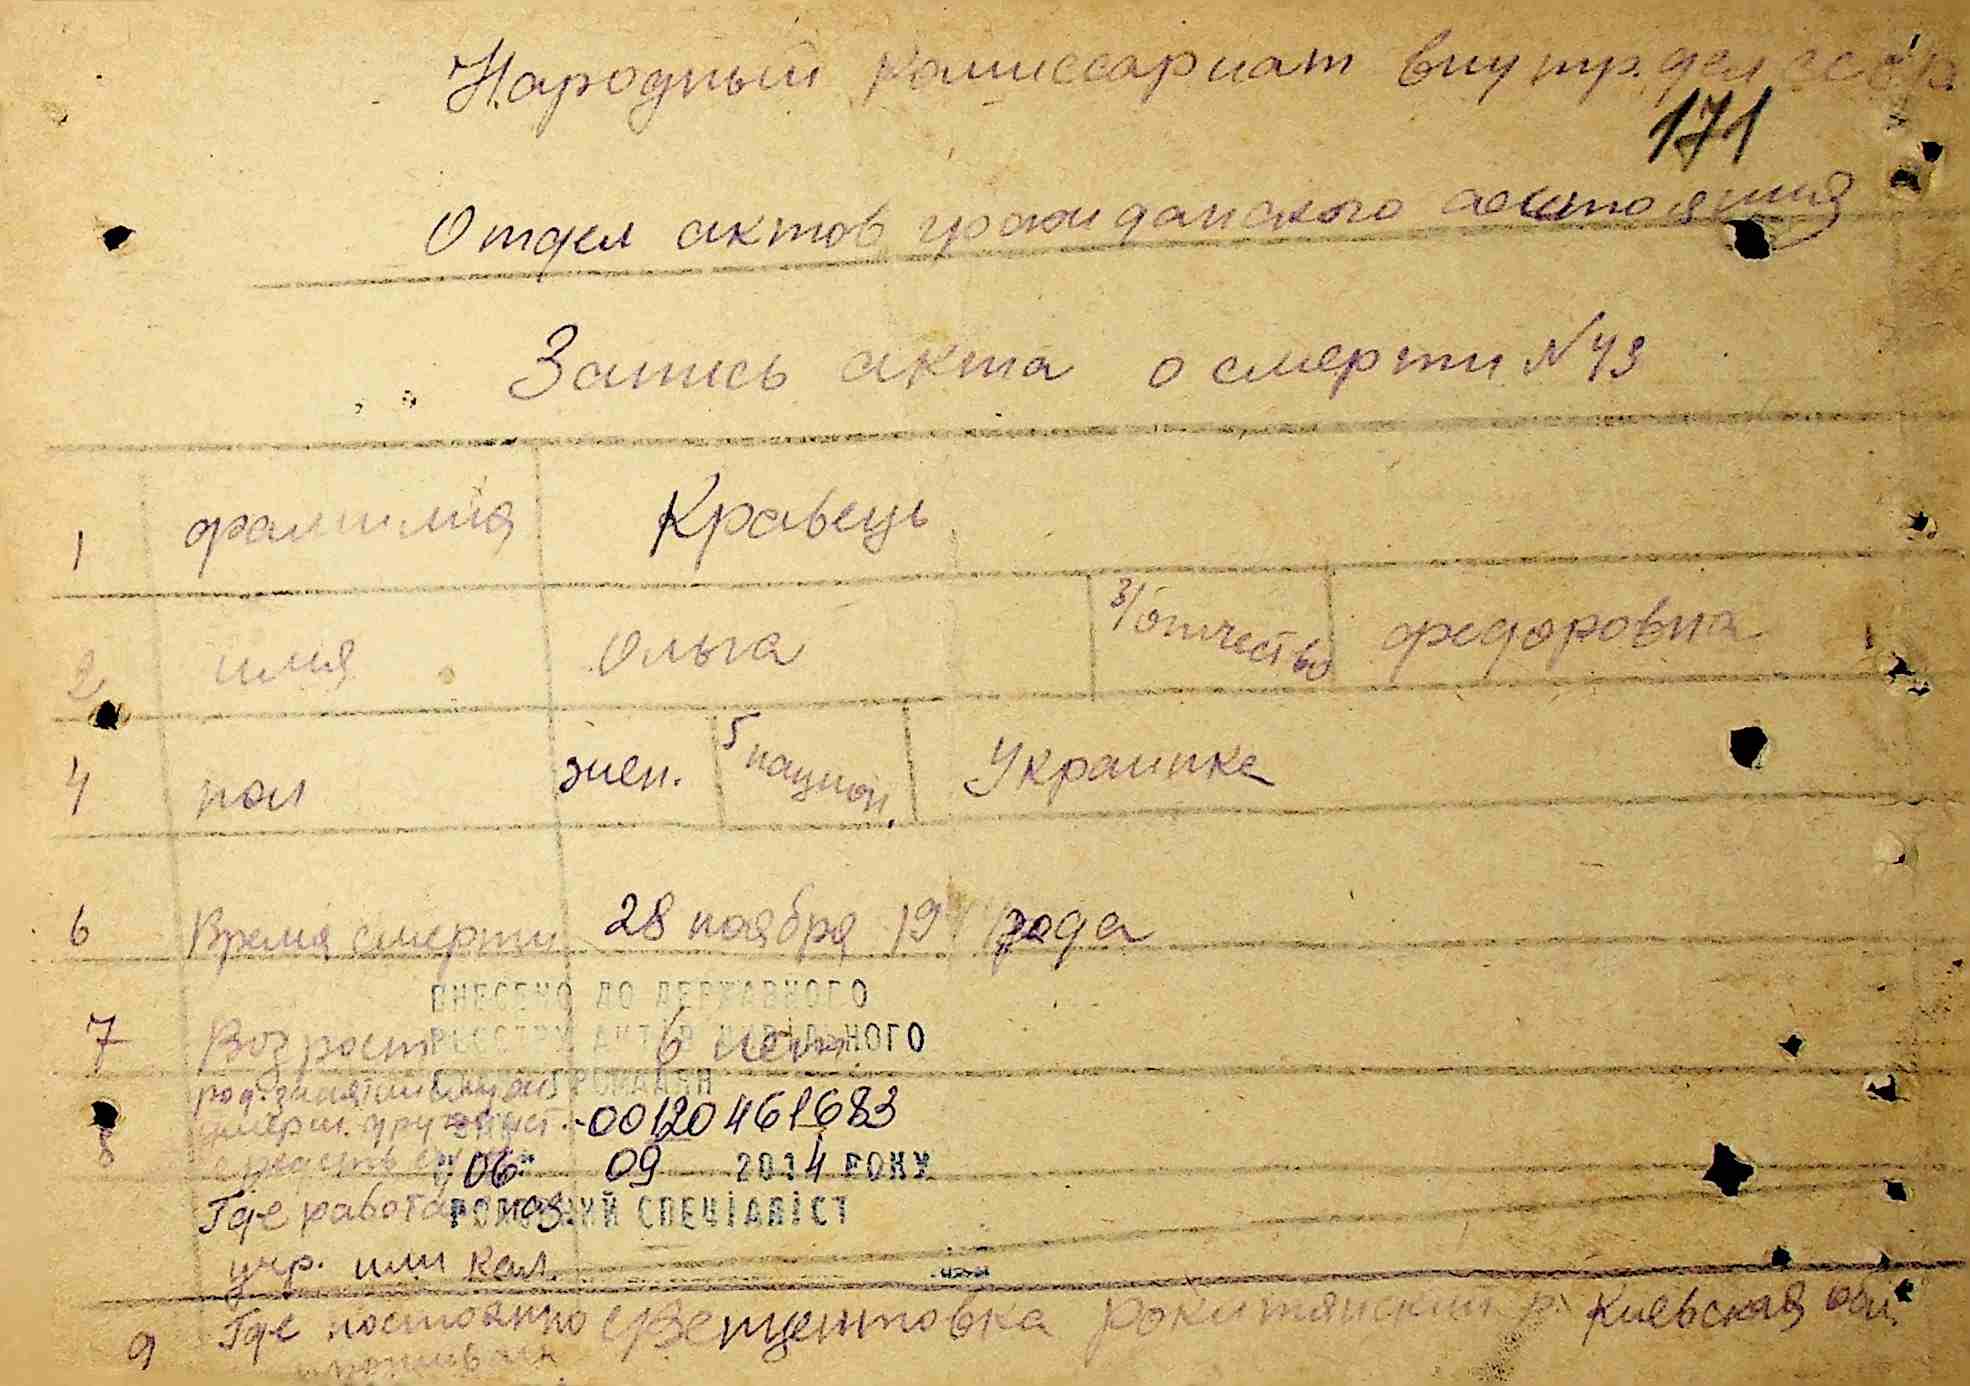 Народный комиссариат внутр. дел ссср
171
Отдел актов гражданского состояния
Запись акта о смерти N 43
1 фамилия Кравець
2 имя Ольга 3/ отчество федоровна
4 пол жен. 5 национ. Украинка
6 Время смерти 28 ноября 194 года
ВНЕСЕНО ДО ДЕРЖАВНОГО
РЕЄСТРУ АКТІВ ЦИВІЛЬНОГО
7 Возраст 6
ГРОМАДЯН
род занятий
умерш. 00120461683
8 средств
"06" 09 2014 РОКУ
Где работал наз.
ГОЛОВНИЙ СПЕЦІАЛІСТ
учр. или кол.
9 Где постоянно с Вещентовка Рокитянский р. Киевская обл.
проживал